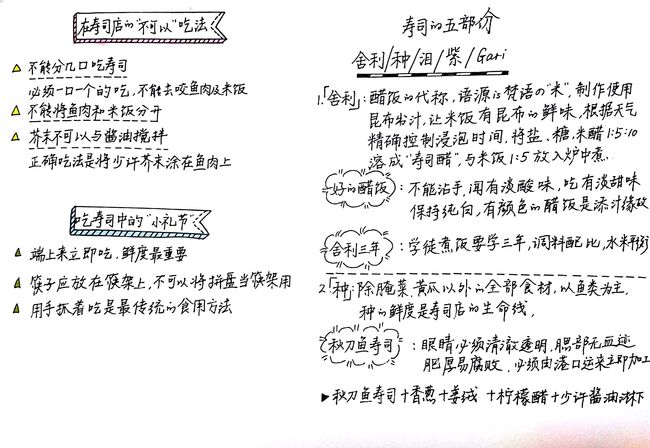 在寿司店的"不可以"吃法
不能分几口吃寿司
必须一口一个的吃,不能去咬鱼肉及米饭
不能将鱼肉和米饭分开
芥末不可以与酱油搅拌
正确吃法是将少许芥末涂在鱼肉上
吃寿司中的"小礼节":
端上来立即吃,鲜度最重要
筷子应放在筷架上,不可以将拼盘当筷架用
用手抓着吃是最传统的食用方法
寿司的五部份
舍利/种/泪/紫/Gari
1.「舍利」:醋饭的代称,语源是梵语的"米",制作使用
昆布出汁,让米饭有昆布的鲜味,根据天气
精确控制浸泡时间,将盐、糖、米醋1:5:10
溶成"寿司醋",与米饭1:5放入炉中煮.
好的醋饭:不能沾手,闻有淡酸味,吃有淡甜味
保持纯白,有颜色的醋饭是添汁缘故
舍利三年:学徒煮饭要学三年,调料配比,水米
2.「种」:除腌菜、黄瓜以外的全部食材,以鱼类为主,
种的鲜度是寿司店的生命线,
秋刀鱼寿司:眼睛必须清澈透明,腮部无血迹
肥厚易腐败,必须由港口运来立即加工
▶秋刀鱼寿司+香葱+姜绒+柠檬醋+少许酱油淋下